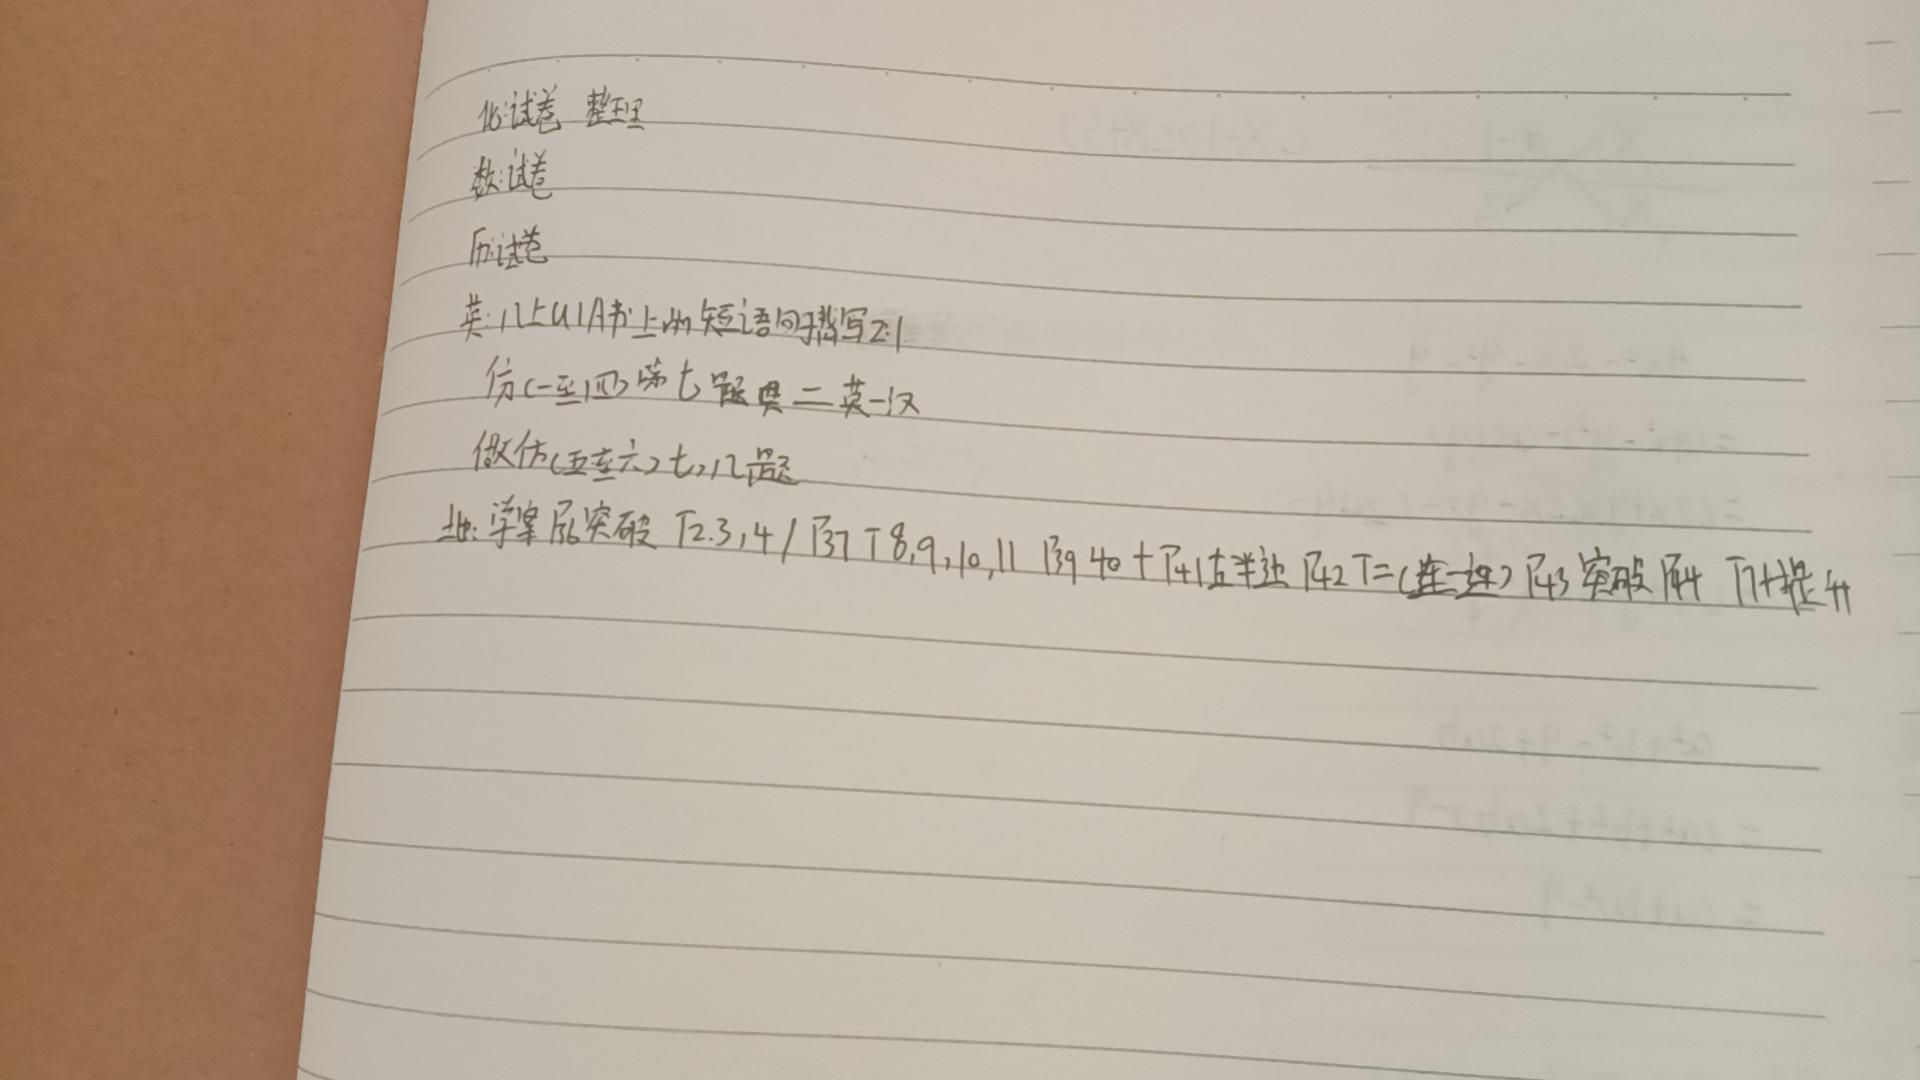 化:试卷 整理
数:试卷
历:试卷
英:八上U1A书上的短语句子背写2:1
仿(一至四)第七题 二英一汉
做仿(五至六)七,八题
地:学案P36突破 T2.3,4/P37 T8,9,10,11 P39 40+P41右半边 P42 T二(连一连) P43突破 P44 T7+提升